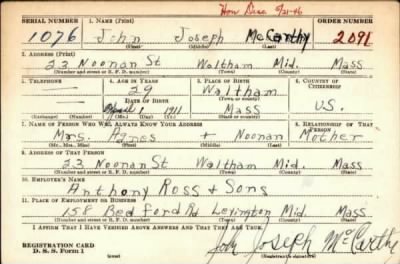 Hon Disc 9/21-46
SERIAL NUMBER 1. NAME (Print) ORDER NUMBER
1076 John Joseph McCarthy 2091
(First) (Middle) (Last)
2. ADDRESS (Print)
23 Noonan St Waltham Mid. Mass
(Number and street or R. F. D. number) (Town) (County) (State)
3. TELEPHONE 4. AGE IN YEARS 5. PLACE OF BIRTH 6. COUNTRY OF CITIZENSHIP
29 Waltham
DATE OF BIRTH (Town or county)
April 1 1911 Mass U.S.
(Exchange) (Number) (Mo.) (Day) (Yr.) (State or country)
7. NAME OF PERSON WHO WILL ALWAYS KNOW YOUR ADDRESS 8. RELATIONSHIP OF THAT PERSON
Mrs. Agnes Noonan Mother
(Mr., Mrs., Miss) (First) (Middle) (Last)
9. ADDRESS OF THAT PERSON
23 Noonan St Waltham Mid. Mass
(Number and street or R. F. D. number) (Town) (County) (State)
10. EMPLOYER'S NAME
Anthony Ross & Sons
11. PLACE OF EMPLOYMENT OR BUSINESS
158 Bedford Rd Lexington Mid. Mass
(Number and street or R. F. D. number) (Town) (County) (State)
I AFFIRM THAT I HAVE VERIFIED ABOVE ANSWERS AND THAT THEY ARE TRUE.
REGISTRATION CARD
D. S. S. FORM 1
John Joseph McCarthy